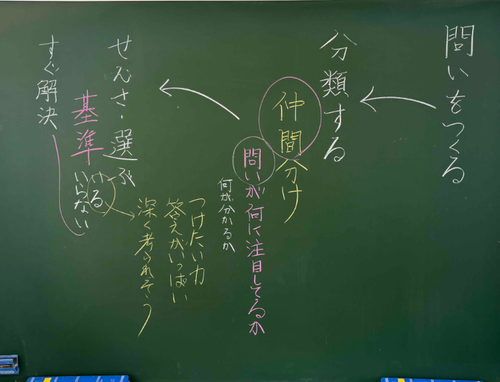 問いをつくる
分類する
仲間分け
問いが何に注目してるか
何が分かるか
せんさ・選ぶ
基準
ける
いらない
すぐ解決
つけたい力
答えがいっぱい
深く考えれそう